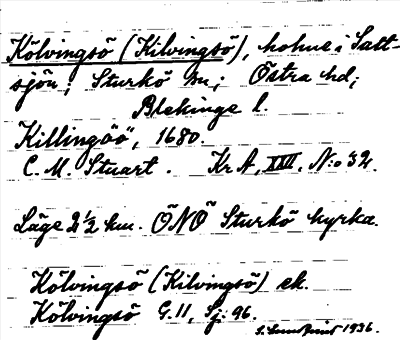 Kölvingsö (Kilvingsö), holme i Salt-
sjön; Sturkö sn; Östra hd;
Blekinge l.
Killingöö", 1680.
C. M. Stuart. Kr A, XXII, N:o 32.
Läge 2 1/2 km. ÖNÖ Sturkö kyrka.
Kölvingsö (Kilvingsö) ek.
Kölvingsö G. 11, Sj: 96.
1936.